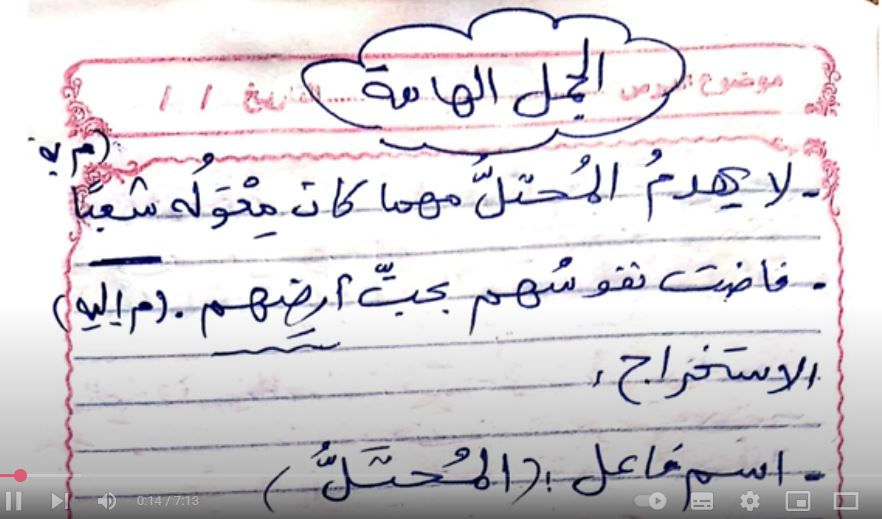 الجمل الهامة
موضوع الدرس ......... التاريخ / /
- لا يهدمُ المُحتلُّ مهما كان مِعْوَلُه شعبًا (م به
. فاضت نفوسُهم بحبِّ أرضِهم . (م إليه)
الاستخراج :
- اسم فاعل : (المُحتَلُّ)
0:14 / 7:13